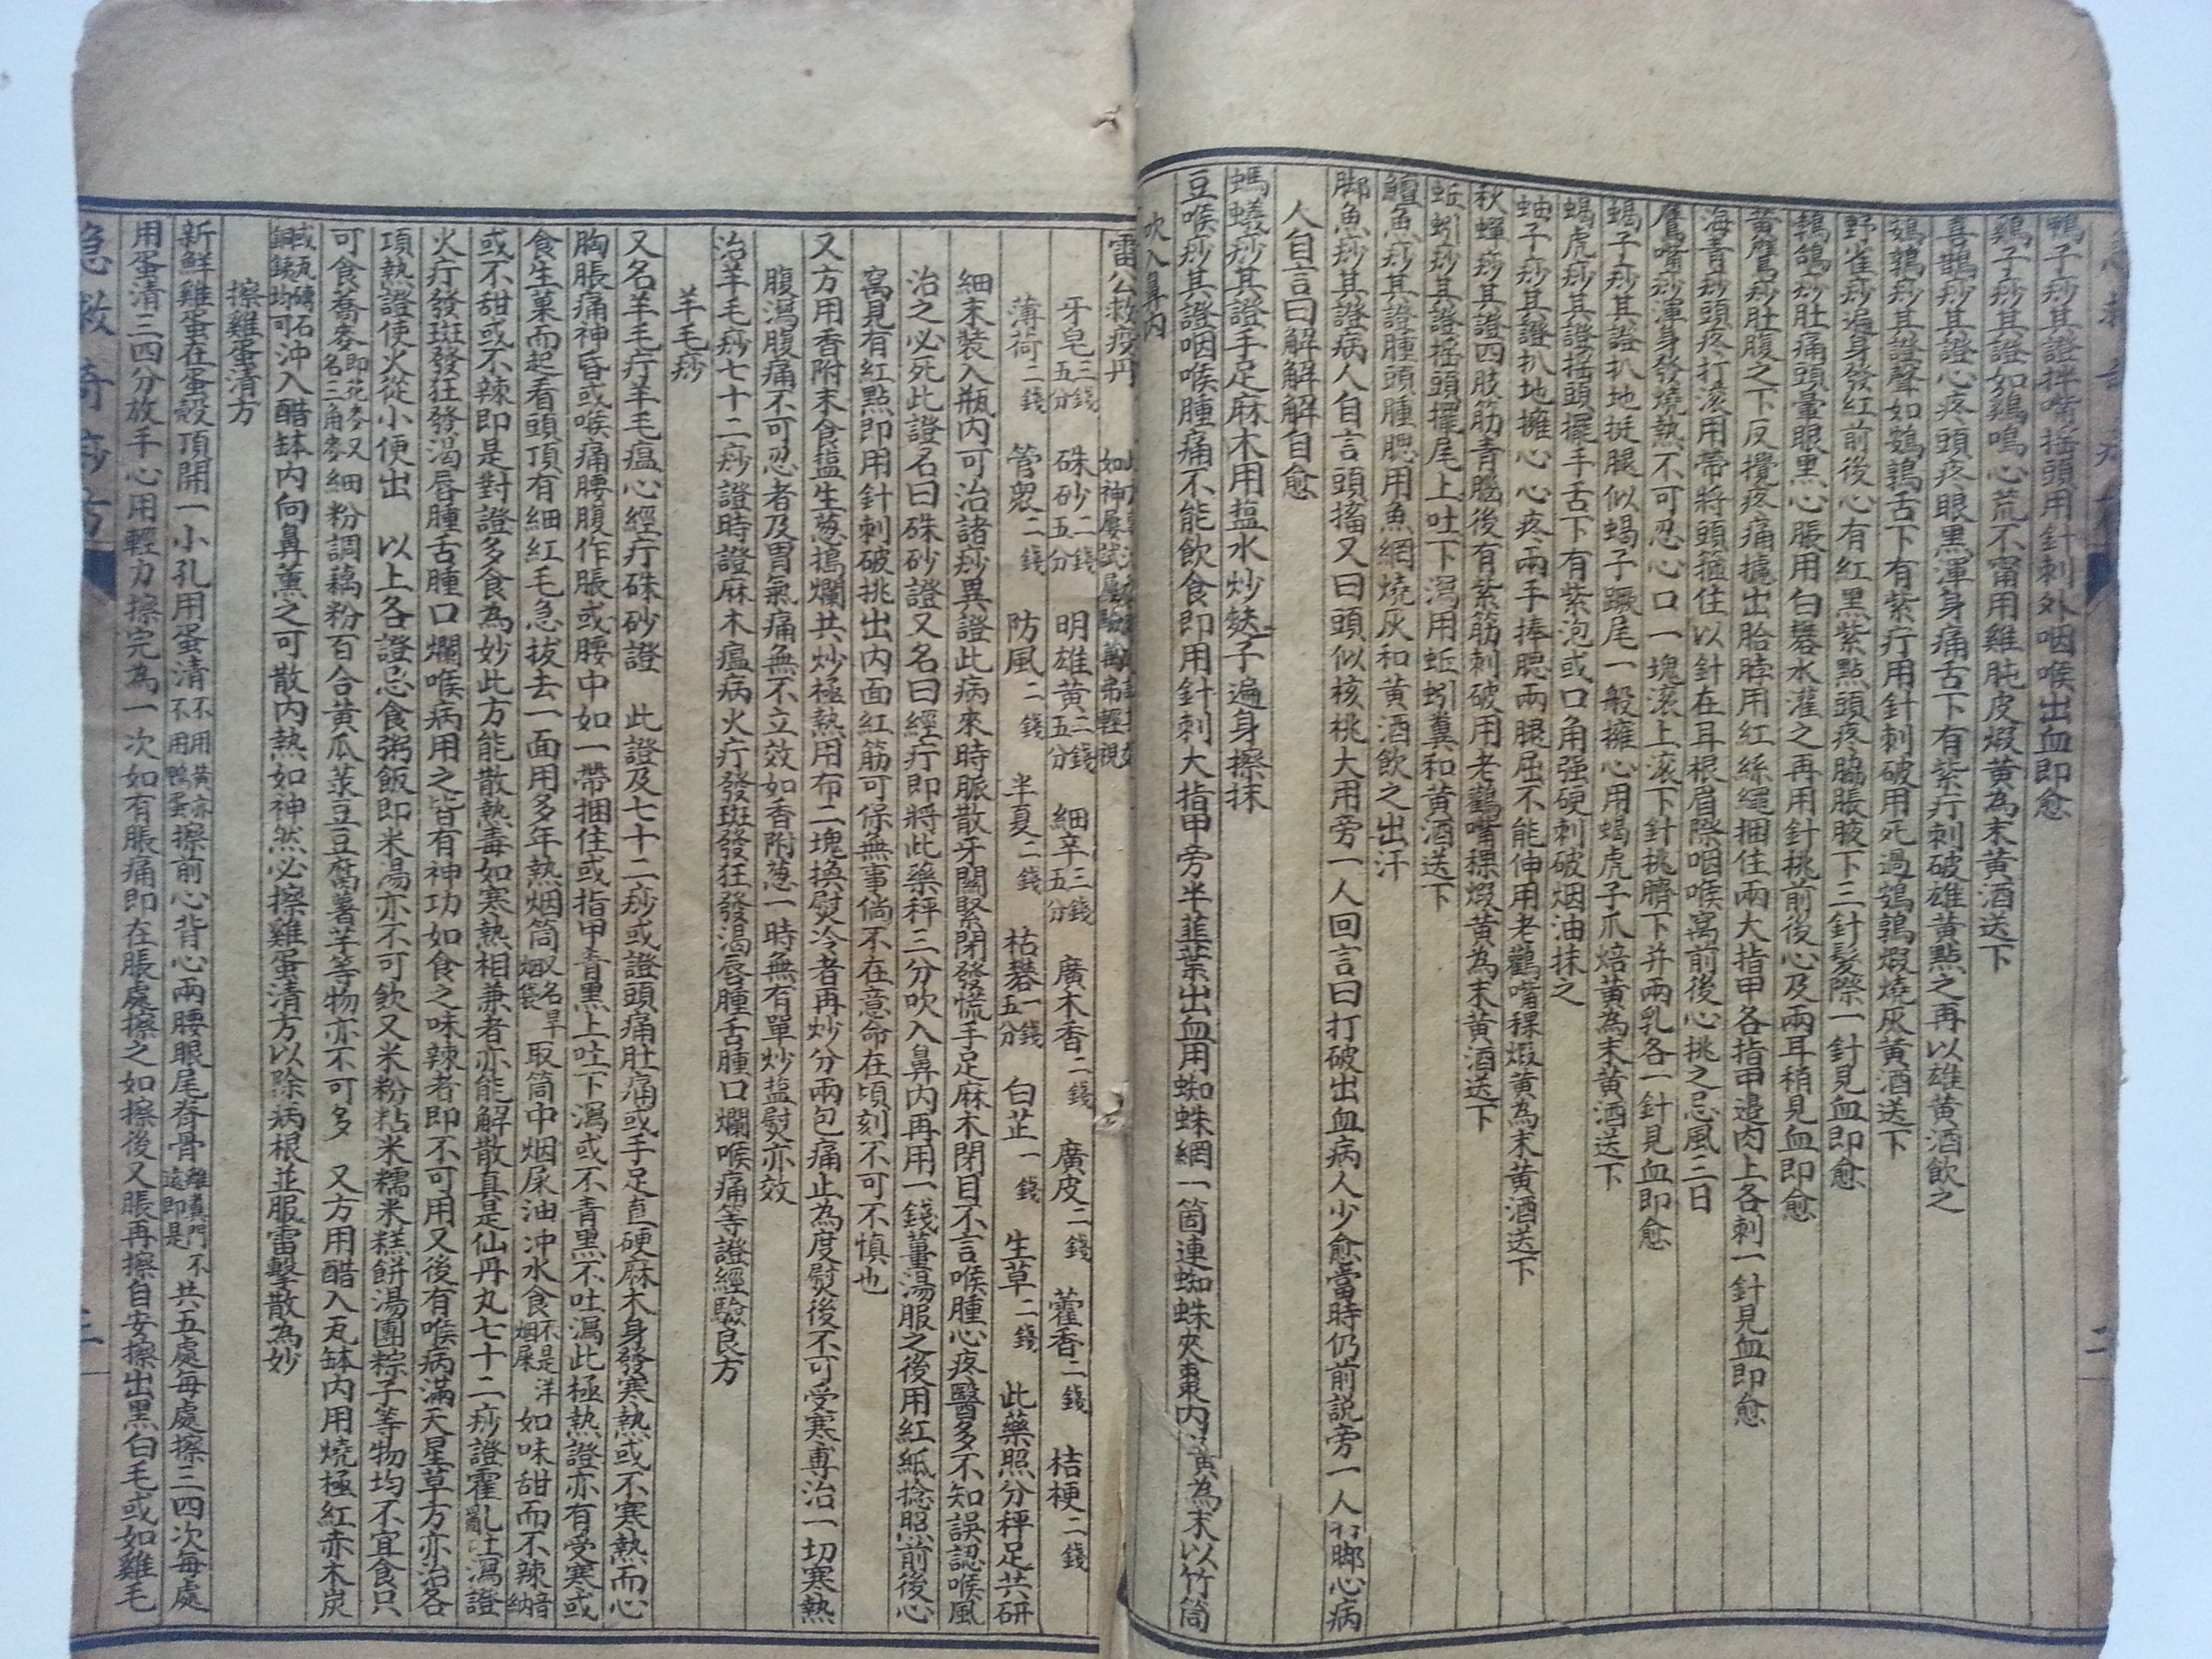 鴨子痧其證拌嘴搖頭用針刺外咽喉出血即愈
鷄子痧其證如鷄鳴心荒不甯用雞肫皮煆黃為末黃酒送下
喜鵲痧其證心疼頭疼眼黑渾身痛舌下有紫疔刺破雄黃點之再以雄黃酒飲之
鵪鶉痧其證聲如鵪鶉舌下有紫疔用針刺破用死過鵪鶉煆燒灰黃酒送下
野雀痧遍身發紅前後心有紅黑紫點頭疼脇脹腋下三針髮際一針見血即愈
鵓鴿痧肚痛頭暈眼黑心脹用白礬水灌之再用針挑前後心及兩耳稍見血即愈
黃鷹痧肚腹之下反攪疼痛攄出胎脖用紅絲繩捆住兩大指甲各指甲邊肉上各刺一針見血即愈
海青痧頭疼打滾用帶將頭箍住以針在耳根眉際咽喉窩前後心挑之忌風三日
鷹嘴痧渾身發燒熱不可忍心口一塊滾上滾下針挑臍下并兩乳各一針見血即愈
蝎子痧其證扒地挺腿似蝎子蹶尾一般擁心用蝎虎子爪焙黃為末黃酒送下
蝎虎痧其證搖頭擺手舌下有紫泡或口角强硬刺破烟油抹之
蚰子痧其證扒地擁心心疼兩手捧腮兩腿屈不能伸用老鸛嘴稞煆黃為末黃酒送下
秋蟬痧其證四肢筋青腦後有紫筋刺破用老鸛嘴稞煆黃為末黃酒送下
蚯蚓痧其證搖頭擺尾上吐下瀉用蚯蚓糞和黃酒送下
鱣魚痧其證腫頭腫腮用魚網燒灰和黃酒飲之出汗
脚魚痧其證病人自言頭搐又曰頭似核桃大用旁一人回言曰打破出血病人少愈當時仍前説旁一人打脚心病
人自言曰解解解自愈
螞蟻痧其證手足麻木用盬水炒麸子遍身擦抹
豆喉痧其證咽喉腫痛不能飲食即用針刺大指甲旁半韮葉出血用蜘蛛網一箇連蜘蛛夾棗內煆黃為末以竹筒
吹入鼻內
雷公救疫丹 如神屢試屢驗萬弗輕視
牙皂三錢五分 硃砂二錢五分 明雄黃二錢五分 細辛三錢五分 廣木香二錢 廣皮二錢 藿香二錢 桔梗二錢
薄荷二錢 管衆二錢 防風二錢 半夏二錢 枯礬一錢五分 白芷一錢 生草二錢 此藥照分秤足共研
細末裝入瓶內可治諸痧異證此病來時脈散牙關緊閉發慌手足麻木閉目不言喉腫心疼醫多不知誤認喉風
治之必死此證名曰硃砂證又名曰經疔即將此藥秤三分吹入鼻內再用一錢薑湯服之後用紅紙捻照前後心
窩見有紅點即用針刺破挑出內面紅筋可保無事倘不在意命在頃刻不可不慎也
又方用香附末食盬生葱搗爛共炒極熱用布二塊換熨冷者再炒分兩包痛止為度熨後不可受寒專治一切寒熱
腹瀉腹痛不可忍者及胃氣痛無不立效如香附葱一時無有單炒盬熨亦效
治羊毛痧七十二痧證時證麻木瘟病火疔發斑發狂發渴唇腫舌腫口爛喉痛等證經驗良方
羊毛痧
又名羊毛疔羊毛瘟心經疔硃砂證 此證及七十二痧或證頭痛肚痛或手足直硬麻木身發寒熱或不寒熱而心
胸脹痛神昏或喉痛腰腹作脹或腰中如一帶捆住或指甲青黑上吐下瀉或不青黑不吐瀉此極熱證亦有受寒或
食生菓而起看頭頂有細紅毛急拔去一面用多年熱烟筒又名旱烟袋取筒中烟屎油冲水食不是洋烟屎如味甜而不辣
或不甜或不辣即是對證多食為妙此方能散熱毒如寒熱相兼者亦能解散真是仙丹丸七十二痧證霍亂吐瀉證
火疔發斑發狂發渴唇腫舌腫口爛喉病用之皆有神功如食之味辣者即不可用又後有喉病滿天星草方亦治各
項熱證使火從小便出 以上各證忌食粥飯即米湯亦不可飲又米粉粘米糯米糕餅湯團粽子等物均不宜食只
可食蕎麥即花麥又名三角麥細粉調藕粉百合黃瓜菉豆豆腐薯芋等物亦不可多 又方用醋入瓦缽內用燒極紅赤木炭
或瓦磚石銅鐵均可沖入醋缽內向鼻薰之可散內熱如神然必擦雞蛋清方以除病根並服雷擊散為妙
擦雞蛋清方
新鮮雞蛋在蛋殼頂開一小孔用蛋清不用黃亦不用鴨蛋擦前心背心兩腰眼尾脊骨離糞門不遠即是共五處每處擦三四次每處
用蛋清三四分放手心用輕力擦完為一次如有脹痛即在脹處擦之如擦後又脹再擦自安擦出黑白毛或如雞毛
急救奇痧方
三
二